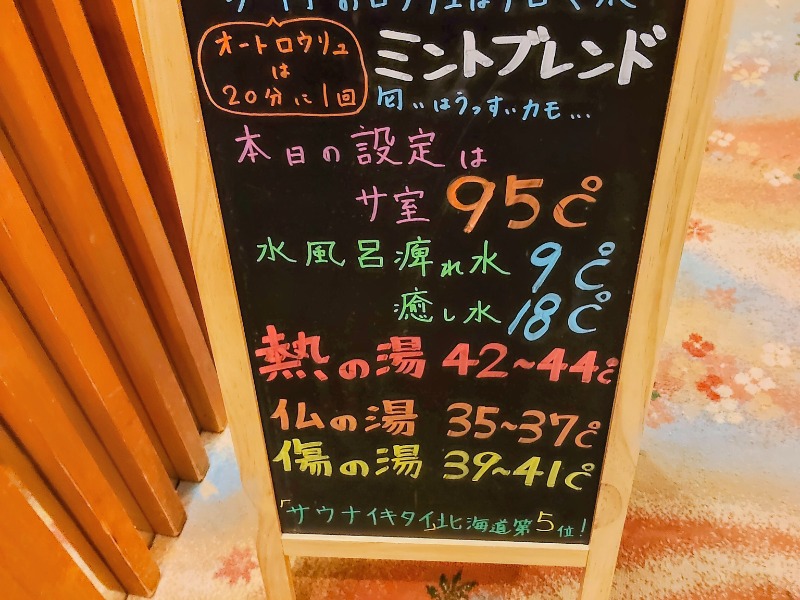 オートロウリュ
は
20分に1回
ミントブレンド
匂いはうっすいカモ...
本日の設定は
サ室 95℃
水風呂痺れ水 9℃
癒し水 18℃
熱の湯 42~44℃
仏の湯 35~37℃
傷の湯 39~41℃
「サウナイキタイ」北海道第5位!